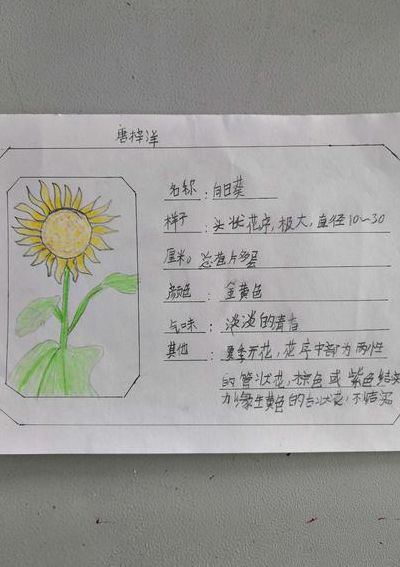 唐梓洋
名称：向日葵
样子：头状花序，极大，直径10～30
厘米。总苞片多层
颜色：金黄色
气味：淡淡的清香
其他：夏季开花，花序中部为两性
的管状花，棕色或紫色结实
缘生黄色的舌状花，不结实